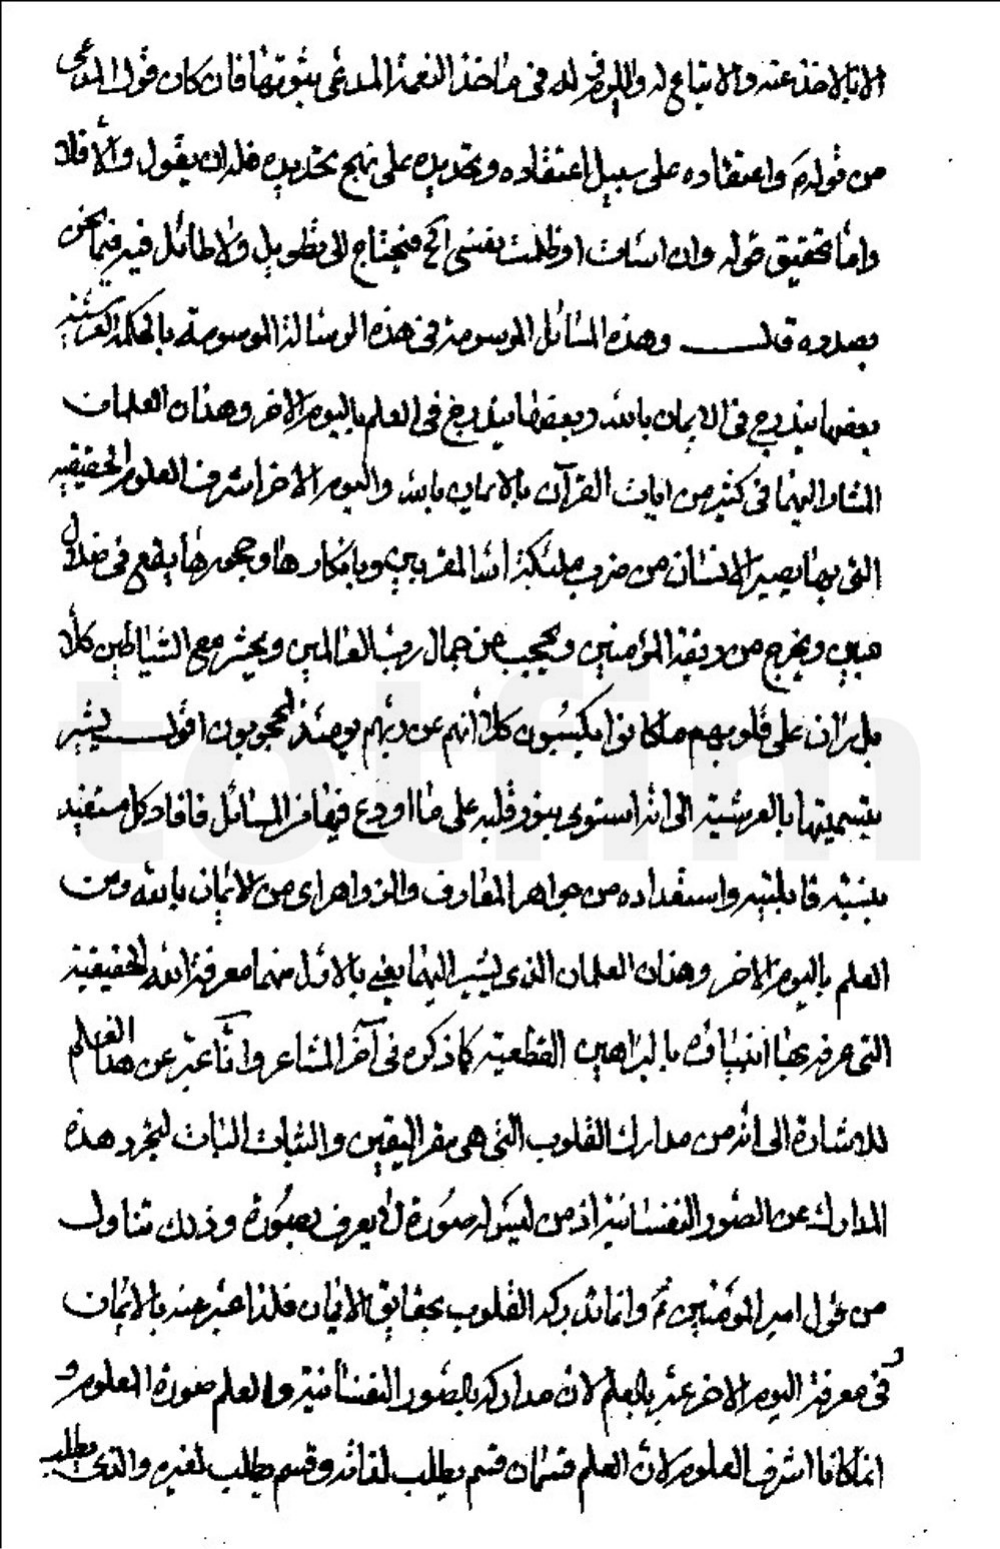 الا بالاخذ عنه والاتباع له والله فى ماخذ النعمة المدعى بثبوتها فان كان قول المدعى
من قولهم واعتقاده على سبيل اعتقاده وتحديده على نهج تحديده فله ان يقول والا فلا
واما تحقيق قوله وان اسات او ظلمت نفسى الخ فيحتاج الى تطويل ولا طائل فيه فيما نحن
بصدده قال وهذه المسائل الموسومة فى هذه الرسالة الموسومة بالحكمة العرشية
بعضها يندرج فى الايمان بالله وبعضها يندرج فى العلم باليوم الاخر وهذان العلمان
المشار اليهما فى كثير من ايات القرآن بالايمان بالله واليوم الاخر اشرف العلوم الحقيقية
التى بها يصير الانسان من حزب ملئكة الله المقربين وبانكارها وجحودها يقع فى ضلال
مبين ويخرج من المؤمنين ويحجب عن جمال رب العالمين ويحشر مع الشياطين كلا
بل ران على قلوبهم ما كانوا يكسبون كلا انهم عن ربهم يومئذ لمحجوبون اقول يشير
بتسميتها بالعرشية الى انه استوى بنور قلبه على ما اودع فيها من المسائل فافاد كل مستفيد
بنسبة قابليته واستعداده من جواهر المعارف والزواهر اى من الايمان بالله ومن
العلم باليوم الاخر وهذان العلمان الذى يشير اليهما يعنى بالاول منهما معرفة الله الحقيقية
التى عرفه بها انبياؤه بالبراهين القطعية كما ذكره فى آخر المشاعر وانما عبر عن هذا العلم
للاشارة الى انه من مدارك القلوب التى هى مقر اليقين والثبات البات لتجرد هذه
المدارك عن الصور النفسانية اذ من ليس له صورة لا يعرف بصورة وذلك تناول
من قول امير المؤمنين ع وانما تدركه القلوب بحقايق الايمان فلذا عبر عنه بالايمان
و فى معرفة اليوم الاخر عبر بالعلم لان مداركه بالصور النفسانية والعلم صورة المعلوم و
انما كانا اشرف العلوم لان العلم قسمان قسم يطلب لذاته وقسم يطلب لغيره والذى يطلب